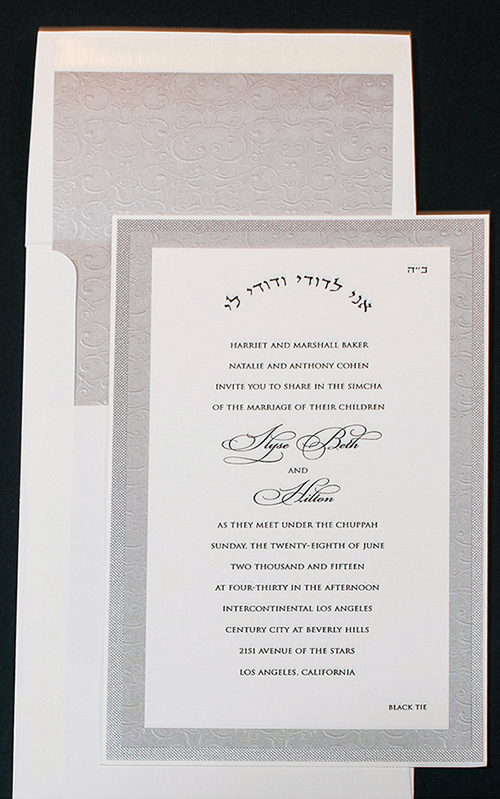 ב״ה
אני לדודי ודודי לי
HARRIET AND MARSHALL BAKER
NATALIE AND ANTHONY COHEN
INVITE YOU TO SHARE IN THE SIMCHA
OF THE MARRIAGE OF THEIR CHILDREN
Alyse Beth
AND
Hilton
AS THEY MEET UNDER THE CHUPPAH
SUNDAY, THE TWENTY-EIGHTH OF JUNE
TWO THOUSAND AND FIFTEEN
AT FOUR-THIRTY IN THE AFTERNOON
INTERCONTINENTAL LOS ANGELES
CENTURY CITY AT BEVERLY HILLS
2151 AVENUE OF THE STARS
LOS ANGELES, CALIFORNIA
BLACK TIE